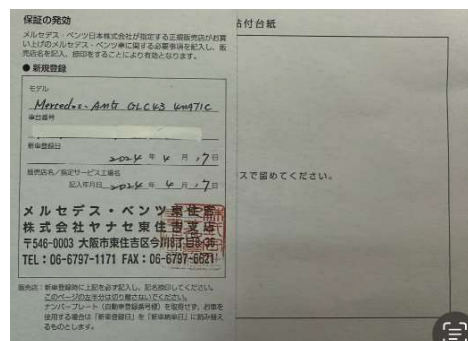 保証の発効
メルセデス・ベンツ日本株式会社が指定する正規販売店がお買
い上げのメルセデス・ベンツ車に関する必要事項を記入し、販
売店名を記入、捺印をすることにより有効となります。
● 新規登録
モデル
Mercedes-AMG GLC43 4MATIC
車台番号
新車登録日
2024 年 4 月 17 日
販売店名/指定サービス工場名
記入年月日 2024 年 4 月 17 日
メルセデス・ベンツ東住吉
株式会社ヤナセ東住吉支店
〒546-0003 大阪市東住吉区今川8丁目8-36
TEL:06-6797-1171 FAX:06-6797-6621
販売店:新車登録時に上記を必ず記入し、記名捺印してください。
このページの左半分は切り離さないでください。
ナンバープレート(自動車登録番号標)を取得せず、お車を
使用する場合は「新車登録日」を「新車納車日」に読み替え
るものとします。
貼付台紙
スで留めてください。